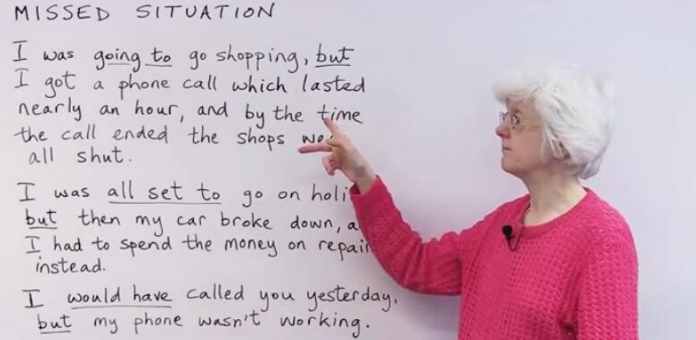 MISSED SITUATION
I was going to go shopping, but
I got a phone call which lasted
nearly an hour, and by the time
the call ended the shops
all shut.
I was all set to go on
but then my car broke down,
I had to spend the money on
instead.
I would have called you yesterday,
but my phone wasn't working.